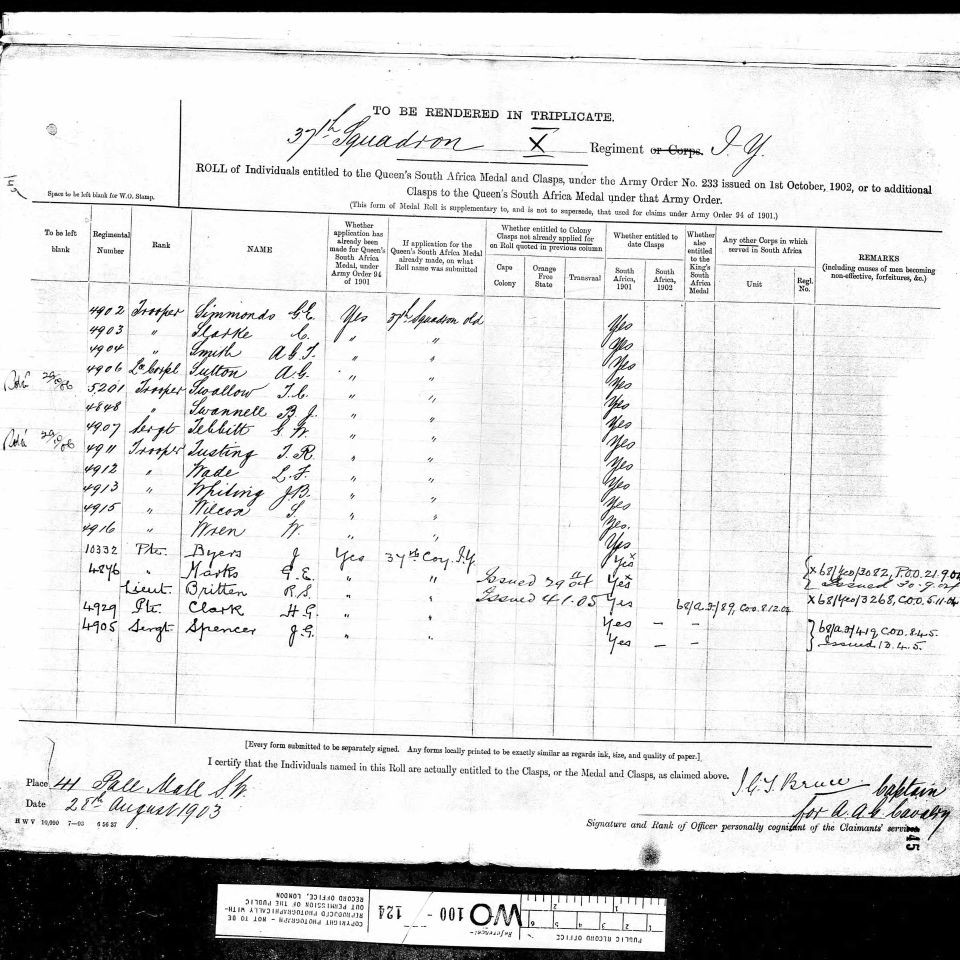 TO BE RENDERED IN TRIPLICATE.
37th Squadron X Regiment or Corps. I. Y.
ROLL of Individuals entitled to the Queen's South Africa Medal and Clasps, under the Army Order No. 233 issued on 1st October, 1902, or to additional
Clasps to the Queen's South Africa Medal under that Army Order.
(This form of Medal Roll is supplementary to, and is not to supersede, that used for claims under Army Order 94 of 1901.)
Space to be left blank for W.O. Stamp.
To be left blank
Regimental Number
Rank
NAME
Whether application has already been made for Queen's South Africa Medal, under Army Order 94 of 1901
If application for the Queen's South Africa Medal already made, on what Roll name was submitted
Whether entitled to Colony Clasps not already applied for on Roll quoted in previous column
Cape Colony
Orange Free State
Transvaal
Whether entitled to date Clasps
South Africa, 1901
South Africa, 1902
Whether also entitled to the King's South Africa Medal
Any other Corps in which served in South Africa
Unit
Regl. No.
REMARKS
(including causes of men becoming non-effective, forfeitures, &c.)
4902 Trooper Simmonds G.E. Yes 37th Squadron old Yes
4903 " C. " " Yes
4904 " Smith " " Yes
4906 Le Corpl Sutton A.G. " " Yes
5201 Trooper Swallow T.C. " " Yes
4848 " Swannell B.J. " " Yes
4907 Sergt Tebbitt G.W. " " Yes
4911 Trooper Tusting T.R. " " Yes
4912 " Wade L.F. " " Yes
4913 " Whiting J.B. " " Yes
4915 " Wilcox S. " " Yes
4916 " Wren W. " " Yes
10332 Pte. Byers J. Yes 37th Coy. I.Y. Yes x
4876 " Marks G.E. " " Yes x x 68/Yeo/3082, P.O.O. 21.9.04
Lieut. Britten R.S. " " Issued Yes x 68/Yeo/3268, C.O.D. 5.11.04
4929 Pte. Clark H.G. " " Issued 4.1.05 Yes
4905 Sergt. Spencer J.G. " " Yes – – 68/A.F/419, C.O.D. 8.4.5.
Issued 10.4.5.
[Every form submitted to be separately signed. Any forms locally printed to be exactly similar as regards ink, size, and quality of paper.]
I certify that the Individuals named in this Roll are actually entitled to the Clasps, or the Medal and Clasps, as claimed above.
Place 41 Pall Mall S.W.
Date 28th August 1903
Bruce Captain
for A.A.G. Cavalry
Signature and Rank of Officer personally cognizant of the Claimants' services
H W V 10,000 7—03
145
PUBLIC RECORD OFFICE
Reference:-
WO 100 - 124
COPYRIGHT PHOTOGRAPH - NOT TO BE
REPRODUCED PHOTOGRAPHICALLY WITH-
OUT PERMISSION OF THE PUBLIC
RECORD OFFICE, LONDON